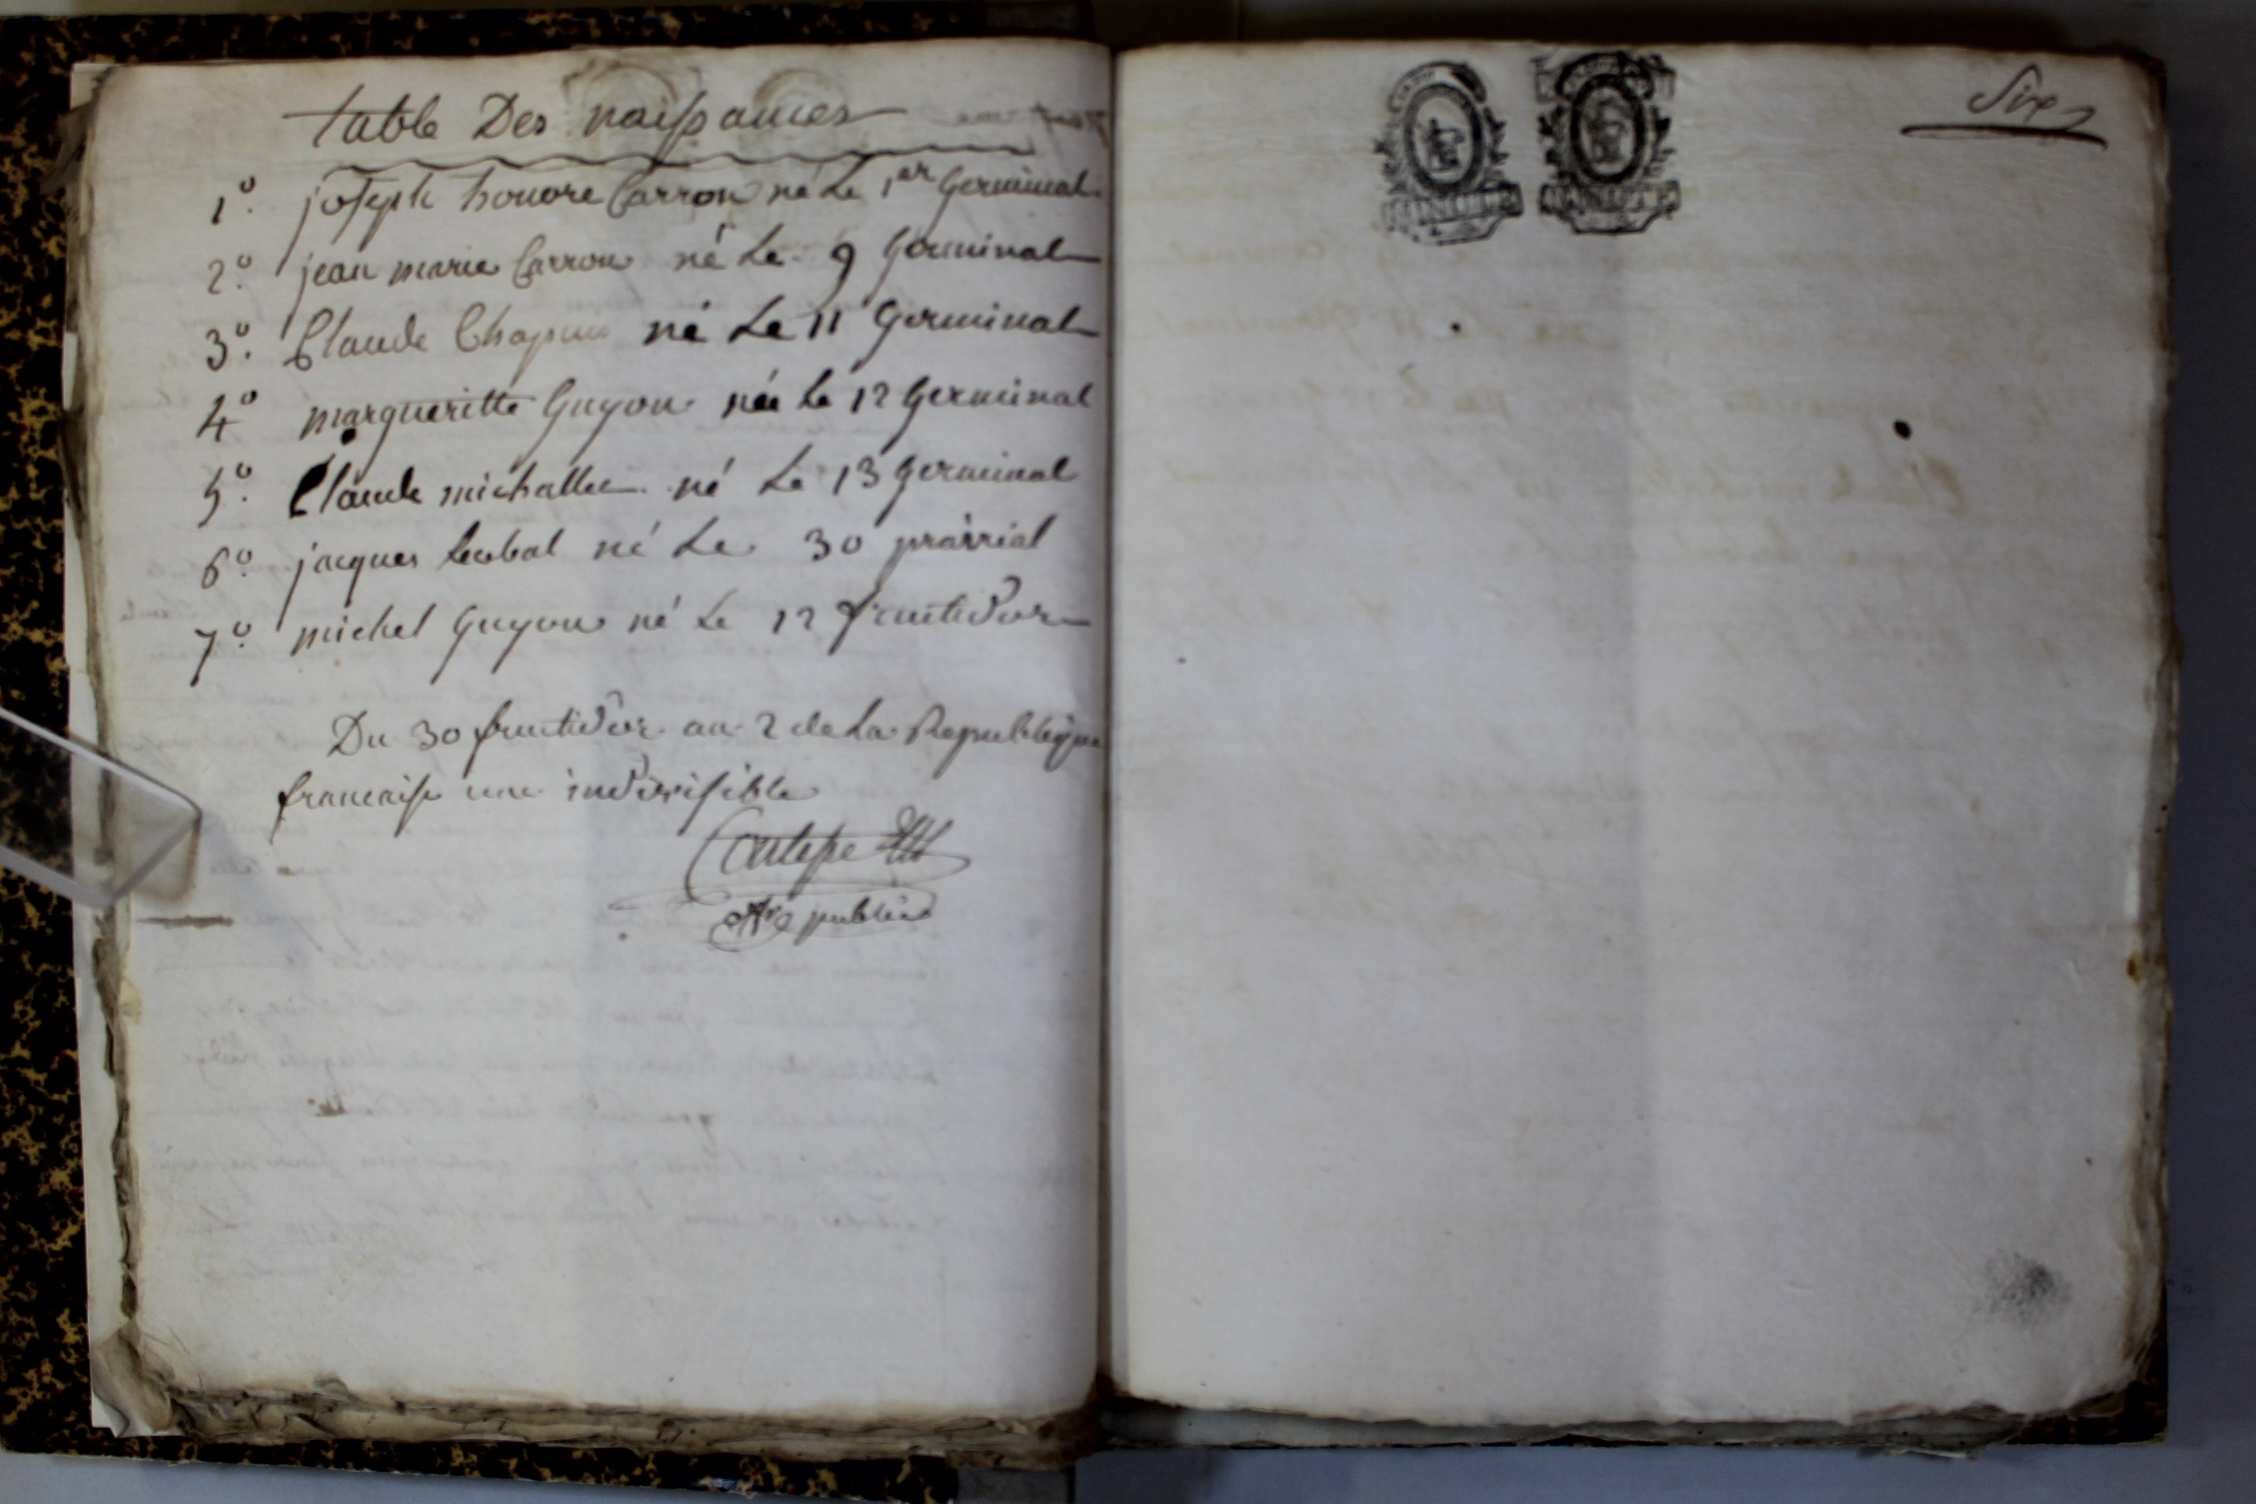 table Des naissances
1º. joseph honore Carron né Le 1er Germinal
2º. jean marie Carron né Le 9 Germinal
3º. Claude Chapuis né Le 11 Germinal
4º margueritte Guyon née Le 12 Germinal
5º. Claude michallet né Le 13 Germinal
6º. jacques né Le 30 prairial
7º. michel Guyon né Le 12 fructidor
Du 30 fructidor an 2 de La Republique
francaise une indivisible
public
Six